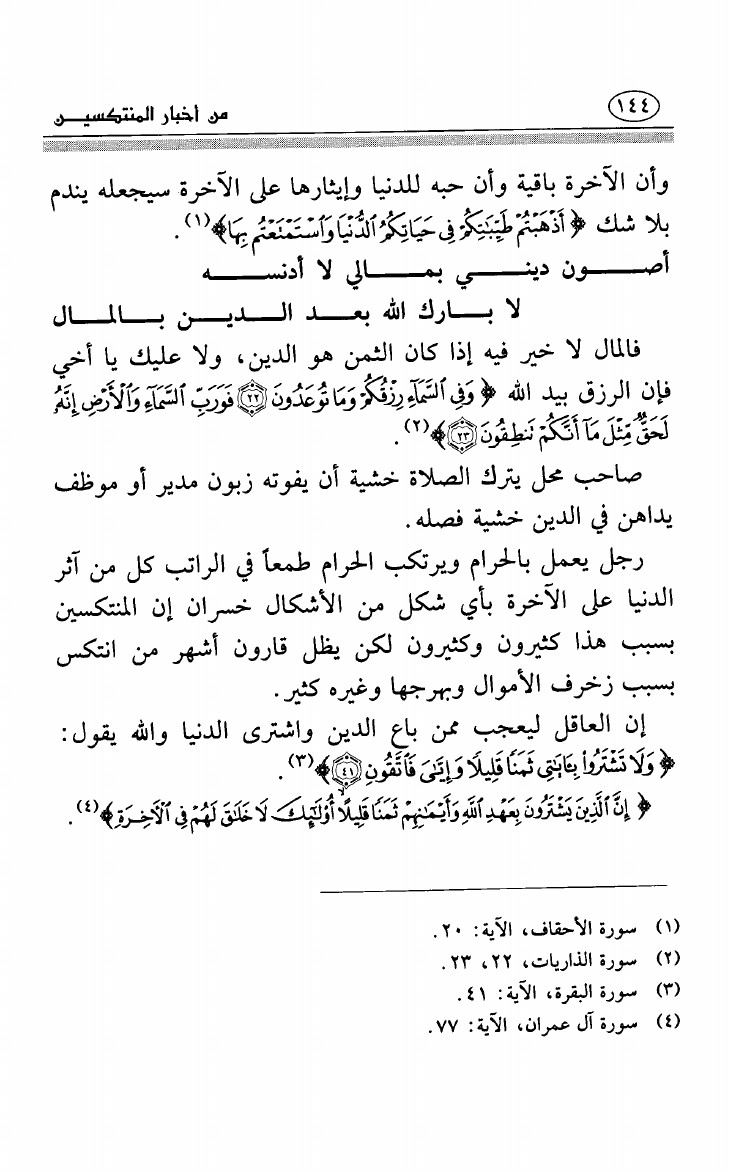 ١٤٤
من أخبار المنتكسين
وأن الآخرة باقية وأن حبه للدنيا وإيثارها على الآخرة سيجعله يندم
بلا شك ﴿ أَذْهَبْتُمْ طَيِّبَاتِكُمْ فِي حَيَاتِكُمُ الدُّنْيَا وَاسْتَمْتَعْتُم بِهَا﴾(١).
أصون ديني بمالي لا أدنسه
لا بارك الله بعد الدين بالمال
فالمال لا خير فيه إذا كان الثمن هو الدين، ولا عليك يا أخي
فإن الرزق بيد الله ﴿ وَفِي السَّمَاءِ رِزْقُكُمْ وَمَا تُوعَدُونَ ٢٢ فَوَرَبِّ السَّمَاءِ وَالْأَرْضِ إِنَّهُ
لَحَقٌّ مِّثْلَ مَا أَنَّكُمْ تَنطِقُونَ ٢٣﴾(٢).
صاحب محل يترك الصلاة خشية أن يفوته زبون مدير أو موظف
يداهن في الدين خشية فصله.
رجل يعمل بالحرام ويرتكب الحرام طمعاً في الراتب كل من آثر
الدنيا على الآخرة بأي شكل من الأشكال خسران إن المنتكسين
بسبب هذا كثيرون وكثيرون لكن يظل قارون أشهر من انتكس
بسبب زخرف الأموال وبهرجها وغيره كثير.
إن العاقل ليعجب ممن باع الدين واشترى الدنيا والله يقول:
﴿ وَلَا تَشْتَرُوا بِآيَاتِي ثَمَنًا قَلِيلًا وَإِيَّايَ فَاتَّقُونِ ٤١﴾(٣).
﴿ إِنَّ الَّذِينَ يَشْتَرُونَ بِعَهْدِ اللَّهِ وَأَيْمَانِهِمْ ثَمَنًا قَلِيلًا أُولَٰئِكَ لَا خَلَاقَ لَهُمْ فِي الْآخِرَةِ﴾(٤).
(١) سورة الأحقاف، الآية: ٢٠.
(٢) سورة الذاريات، ٢٢، ٢٣.
(٣) سورة البقرة، الآية: ٤١.
(٤) سورة آل عمران، الآية: ٧٧.